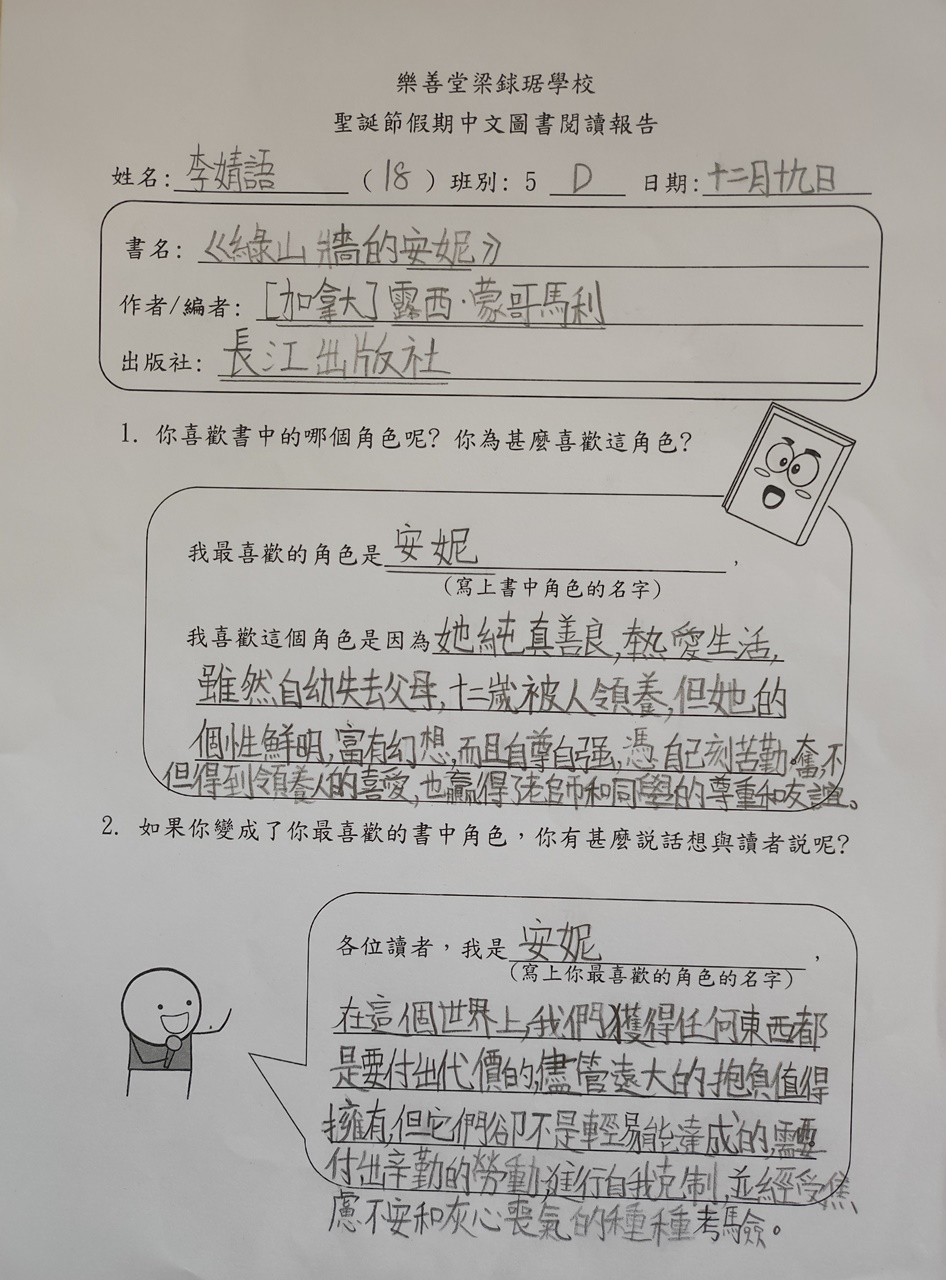 樂善堂梁銶琚學校
聖誕節假期中文圖書閱讀報告
姓名:李婧語 (18) 班別: 5 D 日期:十二月十九日
書名:《綠山牆的安妮》
作者/編者:[加拿大]露西·蒙哥馬利
出版社:長江出版社
1. 你喜歡書中的哪個角色呢? 你為甚麼喜歡這角色?
我最喜歡的角色是安妮,
(寫上書中角色的名字)
我喜歡這個角色是因為她純真善良,熱愛生活,
雖然自幼失去父母,十二歲被人領養,但她的
個性鮮明,富有幻想,而且自尊自強,憑自己刻苦勤奮,不
但得到領養人的喜愛,也贏得了老師和同學的尊重和友誼。
2. 如果你變成了你最喜歡的書中角色,你有甚麼説話想與讀者説呢?
各位讀者,我是安妮,
(寫上你最喜歡的角色的名字)
在這個世界上,我們獲得任何東西都
是要付出代價的,儘管遠大的抱負值得
擁有,但它們卻不是輕易能達成的,需要
付出辛勤的勞動,進行自我克制,並經受焦
慮不安和灰心喪氣的種種考驗。